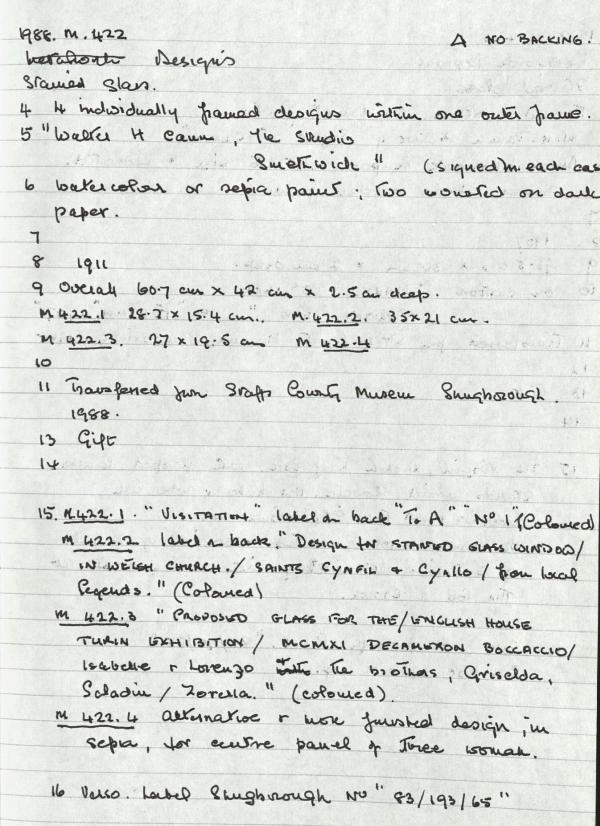 1988. M. 422 △ NO BACKING!
Designs
Stained Glass.
4 4 individually framed designs within one outer frame.
5 "Walter H Camm, The Studio
Smethwick" (signed) in each case
6 Watercolour or sepia paint; two mounted on dark
paper.
7
8 1911
9 Overall 60.7 cm x 42 cm x 2.5 cm deep.
M 422.1 28.7 x 15.4 cm. M. 422.2. 35 x 21 cm.
M 422.3. 27 x 19.5 cm M 422.4
10
11 Transferred from Staffs County Museum Shugborough.
1988.
13 Gift
14
15. M.422.1. "VISITATION" label on back "To A" "No 1" (Coloured)
M 422.2 label on back. "DESIGN for STAINED GLASS WINDOW/
IN WELSH CHURCH./ SAINTS CYNFIL & Cynllo / from local
legends." (Coloured)
M 422.3 "PROPOSED GLASS FOR THE/ENGLISH HOUSE
TURIN EXHIBITION / MCMXI DECAMERON BOCCACCIO/
Isabelle & Lorenzo The brothers, Griselda,
Saladin / Zorella." (coloured).
M 422.4 alternative & more finished design, in
sepia, for centre panel of three women.
16 Verso. Label Shugborough No "83/193/65"